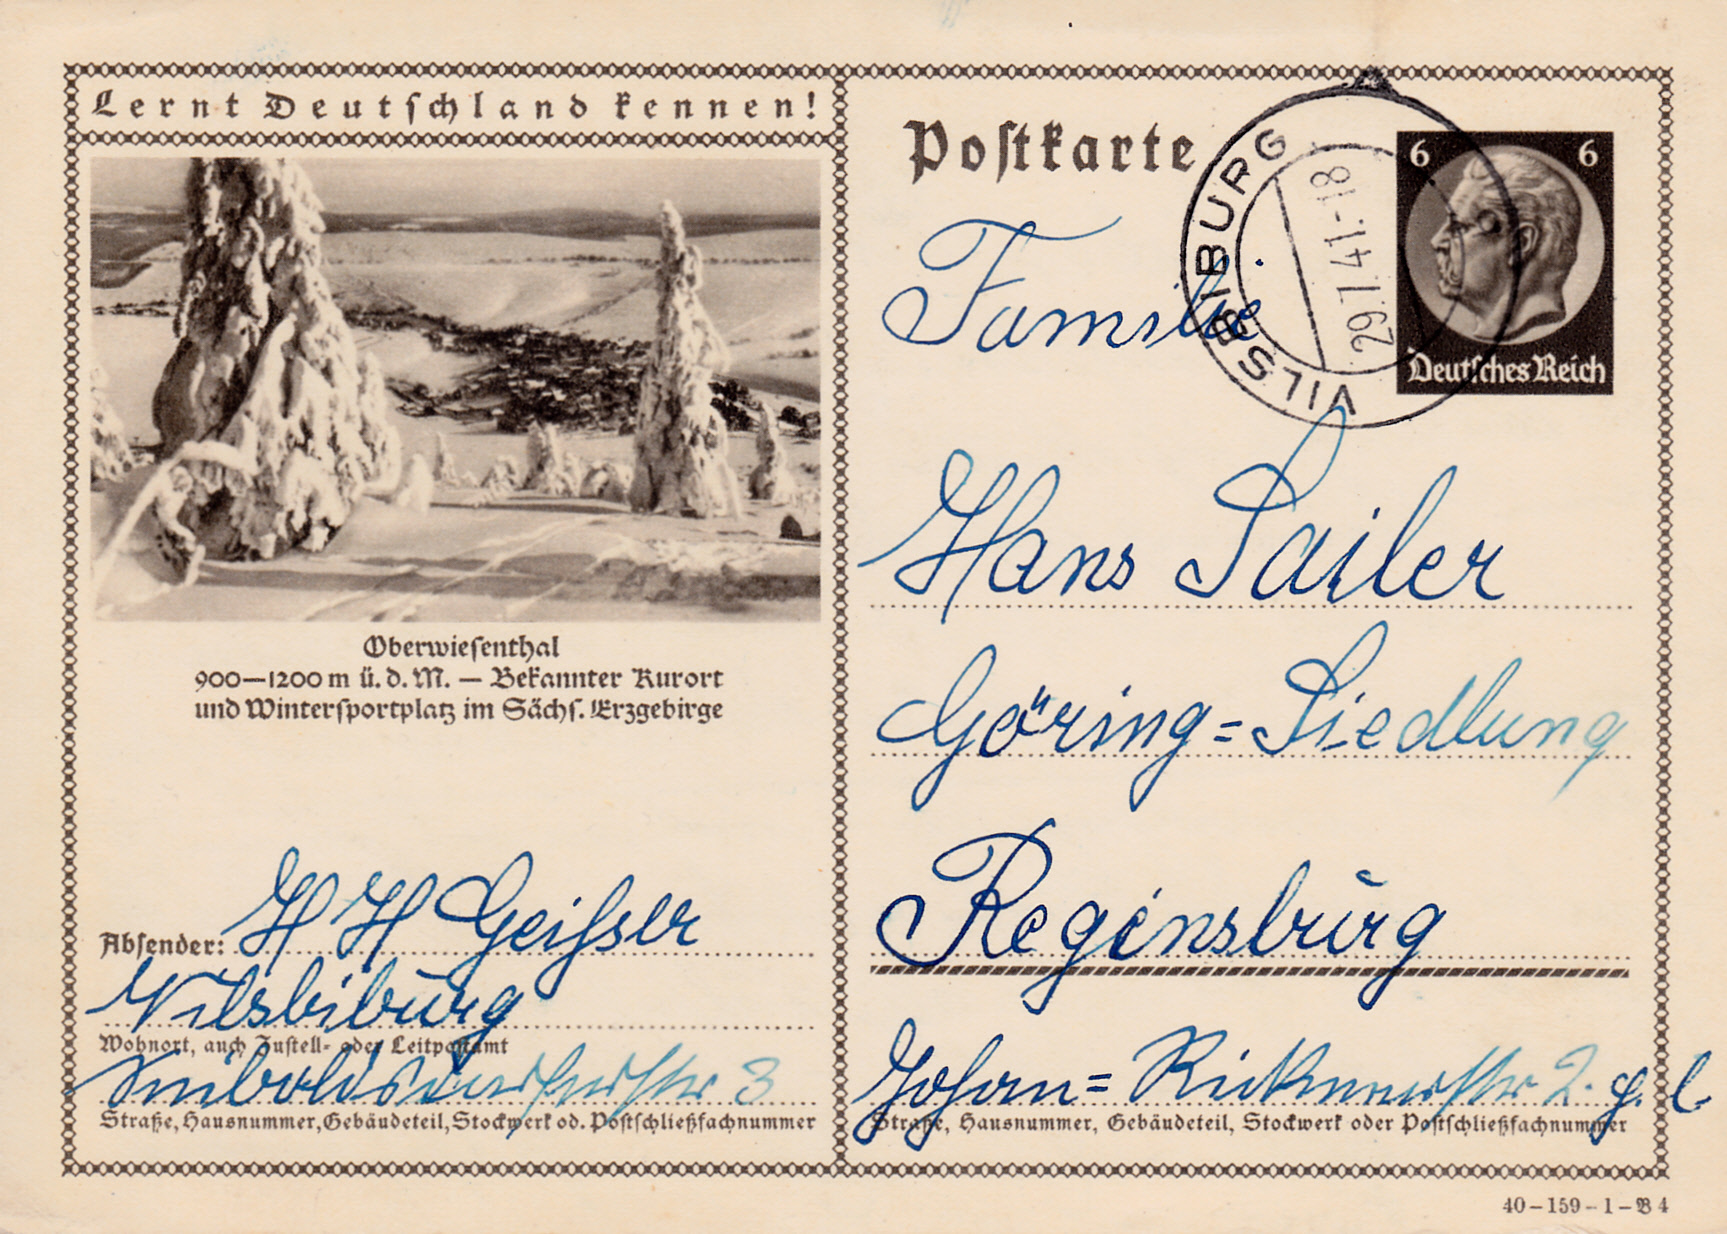 Lernt Deutschland kennen!
Oberwiesenthal
900—1200 m ü. d. M. — Bekannter Kurort
und Wintersportplatz im Sächs. Erzgebirge
Absender: H H Geißler
Vilsbiburg
Wohnort, auch Zustell- oder Leitpostamt
3
Straße, Hausnummer, Gebäudeteil, Stockwerk od. Postschließfachnummer
Postkarte
VILSBIBURG
29.7.41.-18
6 6
Deutsches Reich
Familie
Hans Sailer
Göring=Siedlung
Regensburg
Johan= 2. g. l
Straße, Hausnummer, Gebäudeteil, Stockwerk oder Postschließfachnummer
40–159–1–B 4